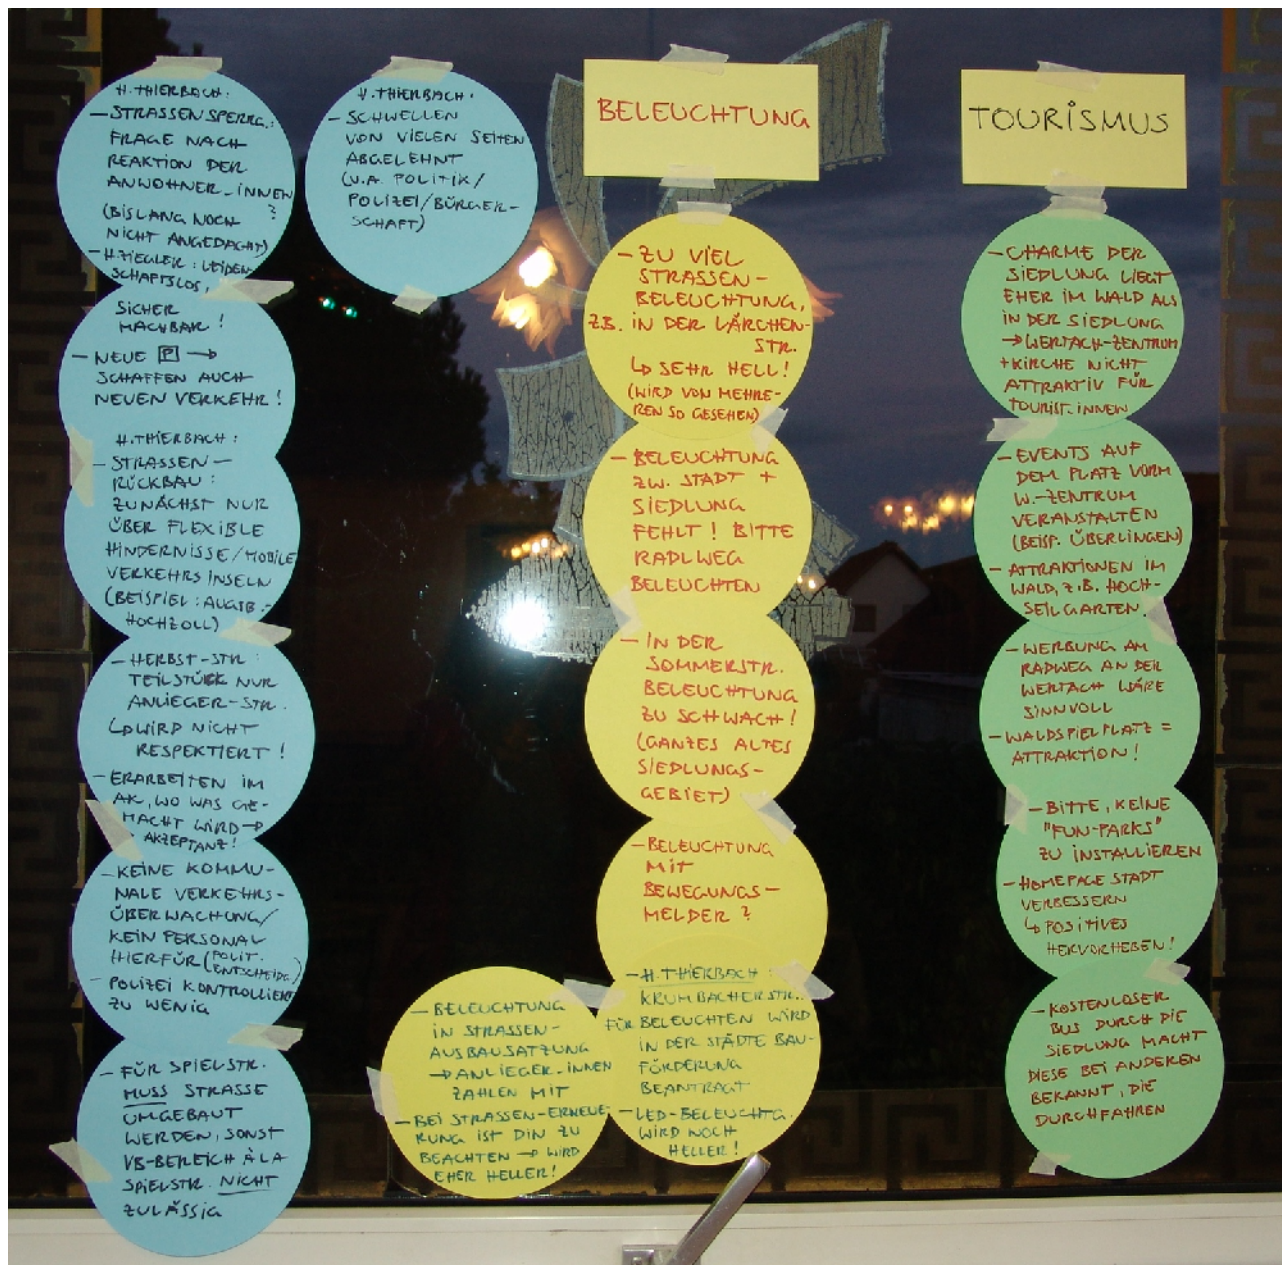 H. THIERBACH:
– STRASSENSPERRG.:
FRAGE NACH
REAKTION DER
ANWOHNER_INNEN
?
(BISLANG NOCH
NICHT ANGEDACHT)
– H. ZIEGLER: LEIDEN-
SCHAFTSLOS,
SICHER
MACHBAR!
– NEUE P →
SCHAFFEN AUCH
NEUEN VERKEHR!
H. THIERBACH:
– STRASSEN–
RÜCKBAU:
ZUNÄCHST NUR
ÜBER FLEXIBLE
HINDERNISSE/MOBILE
VERKEHRSINSELN
(BEISPIEL: AUGSB.-
HOCHZOLL)
– HERBST-STR:
TEILSTÜCK NUR
ANLIEGER-STR.
↳ WIRD NICHT
RESPEKTIERT!
– ERARBEITEN IM
AK, WO WAS GE-
MACHT WIRD →
AKZEPTANZ!
– KEINE KOMMU-
NALE VERKEHRS-
ÜBERWACHUNG/
KEIN PERSONAL
HIERFÜR (POLIT.
ENTSCHEIDG.)
– POLIZEI KONTROLLIERT
ZU WENIG
– FÜR SPIELSTR.
MUSS STRASSE
UMGEBAUT
WERDEN, SONST
VB-BEREICH À LA
SPIELSTR. NICHT
ZULÄSSIG
H. THIERBACH:
– SCHWELLEN
VON VIELEN SEITEN
ABGELEHNT
(U.A. POLITIK/
POLIZEI/BÜRGER-
SCHAFT)
BELEUCHTUNG
– ZU VIEL
STRASSEN–
BELEUCHTUNG,
Z.B. IN DER LÄRCHEN-
STR.
↳ SEHR HELL!
(WIRD VON MEHRE-
REN SO GESEHEN)
– BELEUCHTUNG
ZW. STADT +
SIEDLUNG
FEHLT! BITTE
RADLWEG
BELEUCHTEN
– IN DER
SOMMERSTR.
BELEUCHTUNG
ZU SCHWACH!
(GANZES ALTES
SIEDLUNGS-
GEBIET)
– BELEUCHTUNG
MIT
BEWEGUNGS–
MELDER?
– H. THIERBACH:
KRUMBACHERSTR.
FÜR BELEUCHTEN WIRD
IN DER STÄDTEBAU-
FÖRDERUNG
BEANTRAGT
– LED-BELEUCHTG.
WIRD NOCH
HELLER!
– BELEUCHTUNG
IN STRASSEN-
AUSBAUSATZUNG
→ ANLIEGER_INNEN
ZAHLEN MIT
– BEI STRASSEN-ERNEUE-
RUNG IST DIN ZU
BEACHTEN → WIRD
EHER HELLER!
TOURISMUS
– CHARME DER
SIEDLUNG LIEGT
EHER IM WALD ALS
IN DER SIEDLUNG
→ WERTACH-ZENTRUM
+ KIRCHE NICHT
ATTRAKTIV FÜR
TOURIST_INNEN
– EVENTS AUF
DEM PLATZ VORM
W.-ZENTRUM
VERANSTALTEN
(BEISP. ÜBERLINGEN)
– ATTRAKTIONEN IM
WALD, Z.B. HOCH-
SEILGARTEN
– WERBUNG AM
RADWEG AN DER
WERTACH WÄRE
SINNVOLL
– WALDSPIELPLATZ =
ATTRAKTION!
– BITTE, KEINE
"FUN-PARKS"
ZU INSTALLIEREN
– HOMEPAGE STADT
VERBESSERN
↳ POSITIVES
HERVORHEBEN!
– KOSTENLOSER
BUS DURCH DIE
SIEDLUNG MACHT
DIESE BEI ANDEREN
BEKANNT, DIE
DURCHFAHREN